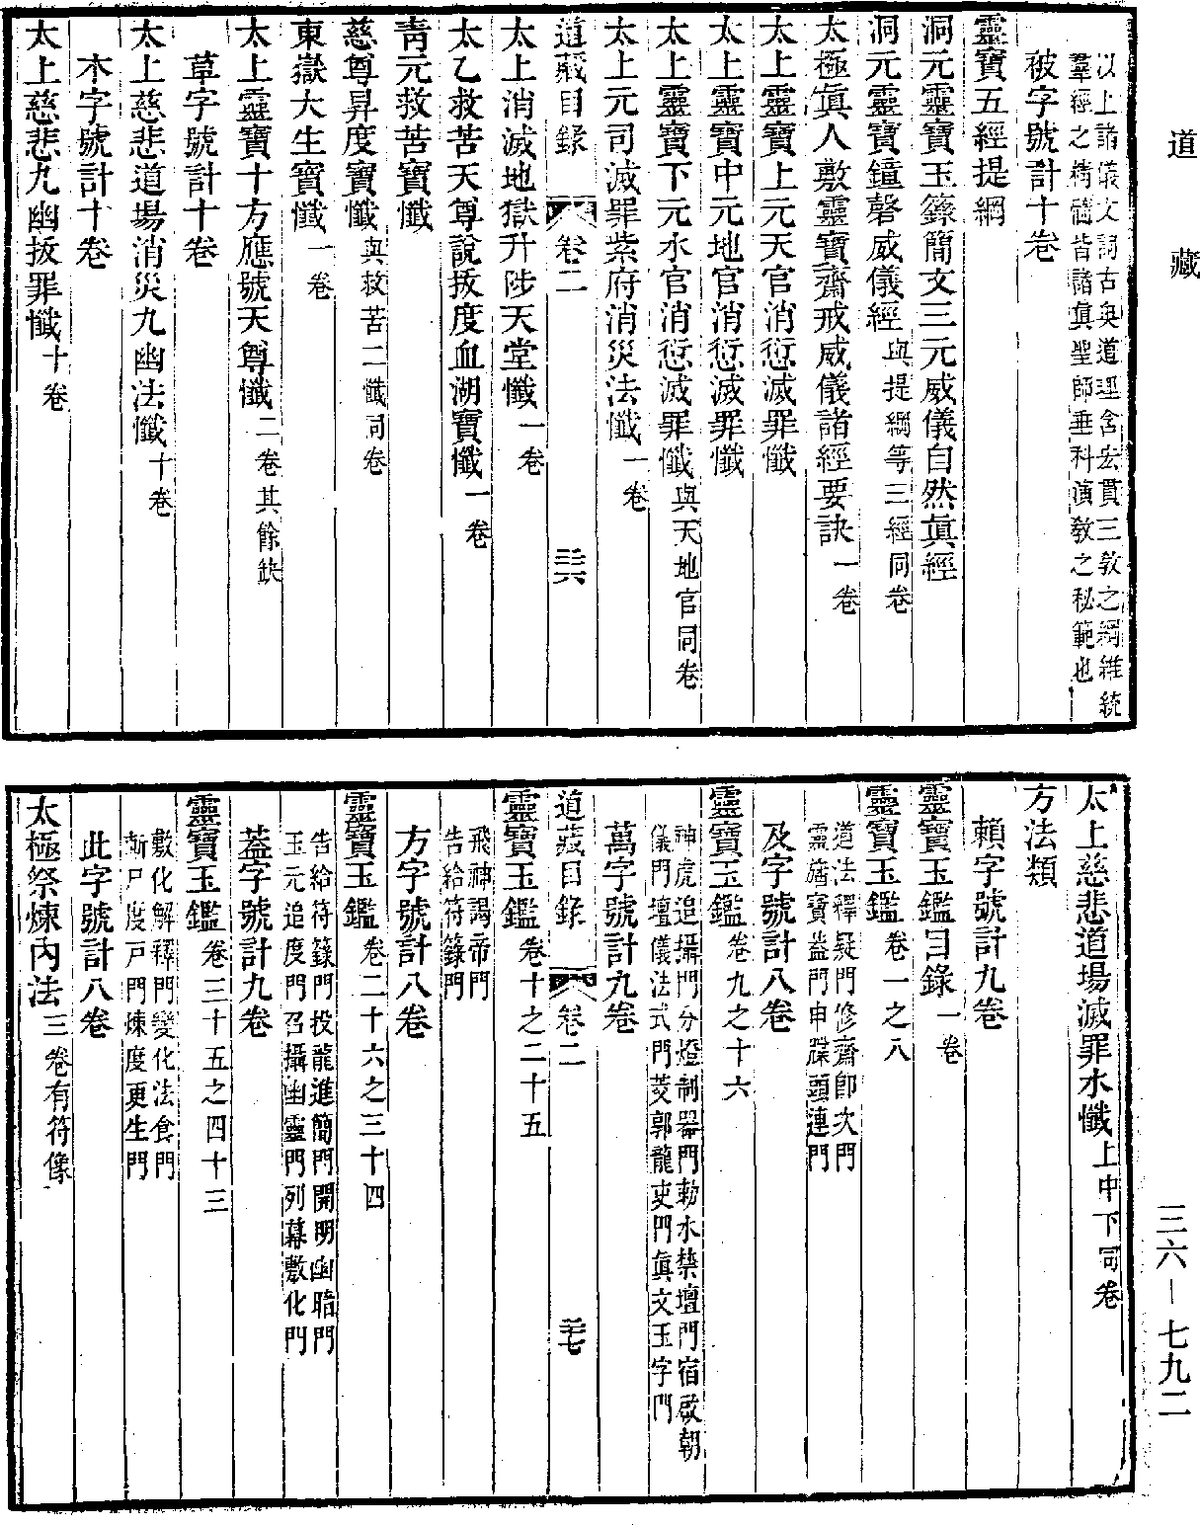 道藏
以上諸儀文詞古奥道理含宏貫三教之綱維統
羣經之精髓皆諸眞聖師垂科演教之秘範也
被字號計十卷
靈寶五經提綱
洞元靈寶玉籙簡文三元威儀自然眞經
洞元靈寶鐘磬威儀經與提綱等三經同卷
太極眞人敷靈寶齋戒威儀諸經要訣一卷
太上靈寶上元天官消愆滅罪懺
太上靈寶中元地官消愆滅罪懺
太上靈寶下元水官消愆滅罪懺與天地官同卷
太上元司滅罪紫府消災法懺一卷
道藏目錄 卷二 三六
太上消滅地獄升陟天堂懺一卷
太乙救苦天尊說拔度血湖寶懺一卷
青元救苦寶懺
慈尊昇度寶懺與救苦二懺同卷
東嶽大生寶懺一卷
太上靈寶十方應號天尊懺二卷其餘缺
草字號計十卷
太上慈悲道場消災九幽法懺十卷
木字號計十卷
太上慈悲九幽拔罪懺十卷
太上慈悲道場滅罪水懺上中下同卷
方法類
賴字號計九卷
靈寶玉鑑目錄一卷
靈寶玉鑑卷一之八
道法釋疑門修齋節次門
靈旛寶葢門申牒頭連門
及字號計八卷
靈寶玉鑑卷九之十六
神虎追攝門分燈制器門勅水禁壇門宿啟朝
儀門壇儀法式門茭郭龍吏門眞文玉字門
萬字號計九卷
道藏目錄 卷二 三七
靈寶玉鑑卷十之二十五
飛神謁帝門
告給符籙門
方字號計八卷
靈寶玉鑑卷二十六之三十四
告給符籙門投龍進簡門開明幽暗門
玉元追度門召攝幽靈門列幕敷化門
葢字號計九卷
靈寶玉鑑卷三十五之四十三
敷化解釋門變化法食門
斬尸度戸門煉度更生門
此字號計八卷
太極祭煉內法三卷有符像
三六－七九二